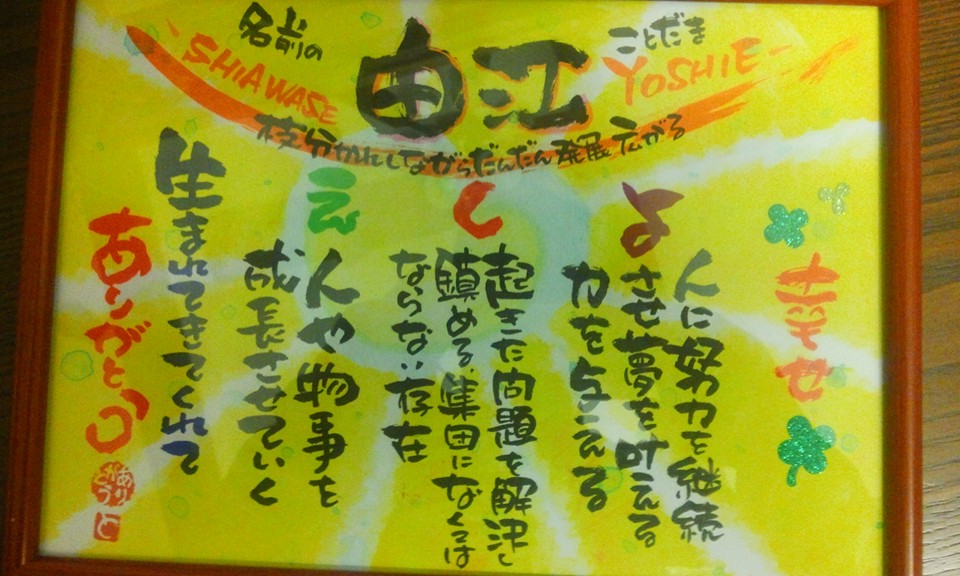 名前の
由江
ことだま
-SHIAWASE
YOSHIE-
枝分かれしながらだんだん発展広がる
幸せ
よ
人に努力を継続
させ夢を叶える
力を与える
し
起きた問題を解決し
鎮める、集団になくては
ならない存在
え
人や物事を
成長させていく
生まれてきてくれて
ありがとう